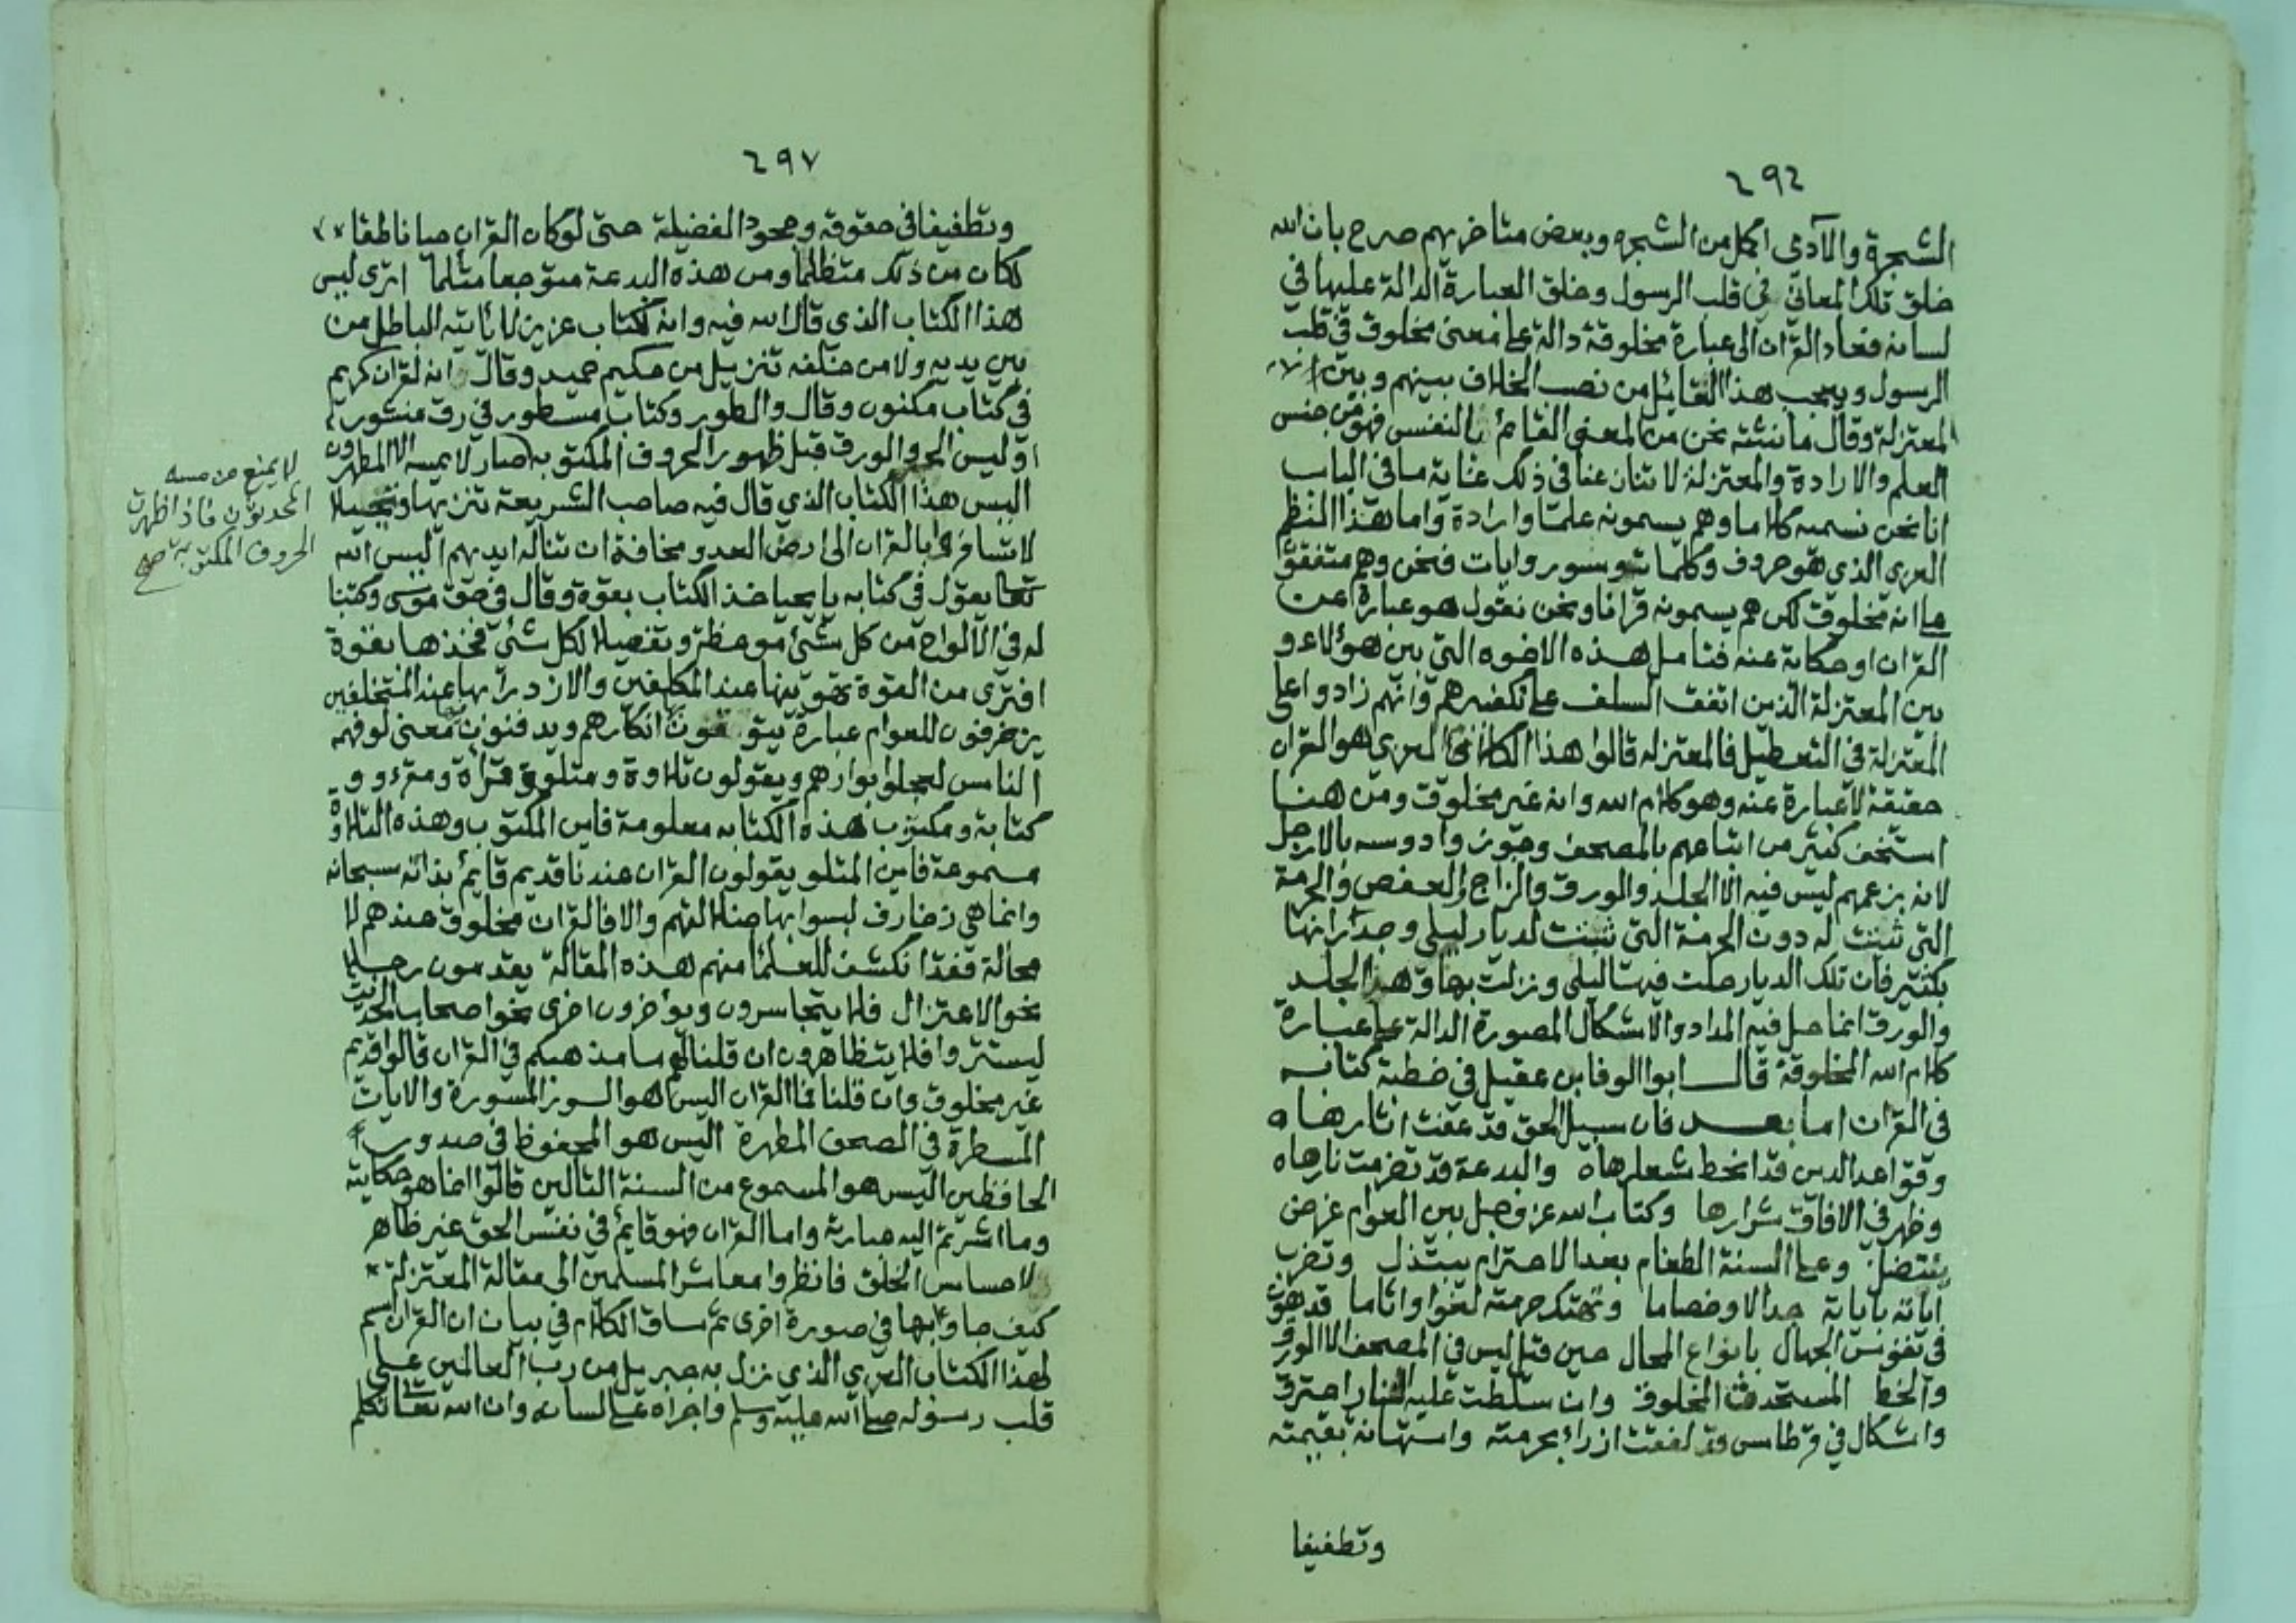 ٢٩٦
الشجرة والآدمي اكمل من الشجره وبعض متاخريهم صرح بان الله
خلق تلك المعاني في قلب الرسول وخلق العبارة الدالة عليها في
لسانه فعاد القران الى عبارة مخلوقة دالة على معنى مخلوق في قلب
الرسول ويعجب هذا القايل من نصب الخلاف بينهم وبين
المعتزلة وقال ما نثبته نحن من المعنى القائم بالنفس فهو من جنس
العلم والارادة والمعتزلة لا تنازعنا في ذلك غاية ما في الباب
انا نحن نسميه كلاما وهم يسمونه علما وارادة واما هذا النظم
العربي الذي هو حروف وكلمات وسور وايات فنحن وهم متفقون
على انه مخلوق لكن هم يسمونه قرانا ونحن نقول هو عبارة عن
القران او حكاية عنه فتامل هذه الاخوه التي بين هؤلاء و
بين المعتزلة الذين اتفق السلف على تكفيرهم وانهم زادوا على
المعتزلة في التعطيل فالمعتزله قالوا هذا الكلام العربي هو القران
حقيقة لا عبارة عنه وهو كلام الله وانه غير مخلوق ومن هنا
استخف كثير من اتباعهم بالمصحف وجوزوا دوسه بالارجل
لانه بزعمهم ليس فيه الا الجلد والورق والزاج والعفص والحرمة
التي ثبتت له دون الحرمة التي ثبتت لديار ليلى وجدرانها
بكثير فان تلك الديار حلت فيها ليلى ونزلت بها وهذا الجلد
والورق انما حل فيه المداد والاشكال المصورة الدالة على عبارة
كلام الله المخلوقة قال ابوا الوفا بن عقيل في خطبة كتابه
في القران اما بعد فان سبيل الحق قد عفت اثارها
وقواعد الدين قد انحط شعارها والبدعة قد تضرمت نارها
وظهر في الافاق شرارها وكتاب الله عز وجل بين العوام غرض
ينتضل وعلى السنة الطغام بعد الاحترام يبتذل وتضرب
اياته باياته جدالا وخصاما وتهتك حرمته لغوا واثاما قد هون
في نفوس الجهال بانواع المحال حين قيل ليس في المصحف الا الورق
والخط المستحدث المخلوق وان سلطت عليه النار احترق
واشكال في قرطاس قد لفقت ازراء بحرمته واستهانة بقيمته
وتطفيفا
٢٩٧
وتطفيفا في حقوقه وجحودا لفضيلة حتى لو كان القران حيا ناطقا
لكان من ذلك متظلما ومن هذه البدعة متوجعا متالما اترى ليس
هذا الكتاب الذي قال الله فيه وانه لكتاب عزيز لا ياتيه الباطل من
بين يديه ولا من خلفه تنزيل من حكيم حميد وقال انه لقران كريم
في كتاب مكنون وقال والطور وكتاب مسطور في رق منشور
او ليس الحبر والورق قبل ظهور الحروف المكتوبه صار لا يمسه الا المطهرون
لا يمنع من مسه
المحدثون فاذا ظهرت
الحروف المكتوبة صح
اليس هذا الكتاب الذي قال فيه صاحب الشريعة تنزيها وتبجيلا
لا تسافروا بالقران الى ارض العدو مخافة ان تناله ايديهم اليس الله
تعا يقول في كتابه يا يحيا خذ الكتاب بقوة وقال في حق موسى وكتبنا
له في الالواح من كل شئ موعظة وتفصيلا لكل شئ فخذها بقوة
افترى من القوة تهوينها عند المكلفين والازدراء بها عند المتخلفين
يزخرفون للعوام عبارة يتوقون انكارهم ويدفنون معنى لو فهمه
الناس لعجلوا بوارهم ويقولون تلاوة ومتلو وقراة ومقروو
كتابة ومكتوب هذه الكتابه معلومة فاين المكتوب وهذه التلاوة
مسموعة فاين المتلو يقولون القران عندنا قديم قايم بذاته سبحانه
وانما هي زخارف لبسوا بها ضلالتهم والا فالقران مخلوق عندهم لا
محالة فقد انكشف للعلماء منهم هذه المقالة يقدمون رجلا
نحو الاعتزال فلا يتجاسرون ويؤخرون اخرى نحوا صحاب الحديث
ليستتروا فلا يتظاهرون ان قلنا لهم ما مذهبكم في القران قالوا قديم
غير مخلوق وان قلنا فما القران اليس هو السور المسورة والايات
المسطرة في الصحف المطهرة اليس هو المحفوظ في صدور
الحافظين اليس هو المسموع من السنة التالين قالوا انما هو حكايته
وما اشرتم اليه عبارته واما القران فهو قايم في نفس الحق غير ظاهر
لاحساس الخلق فانظروا معاشر المسلمين الى مقالة المعتزلة
كيف جاوا بها في صورة اخرى ثم ساق الكلام في بيان ان القران اسم
لهذا الكتاب العربي الذي نزل به جبريل من رب العالمين على
قلب رسوله صلى الله عليه وسلم واجراه على لسانه وان الله تعا تكلم